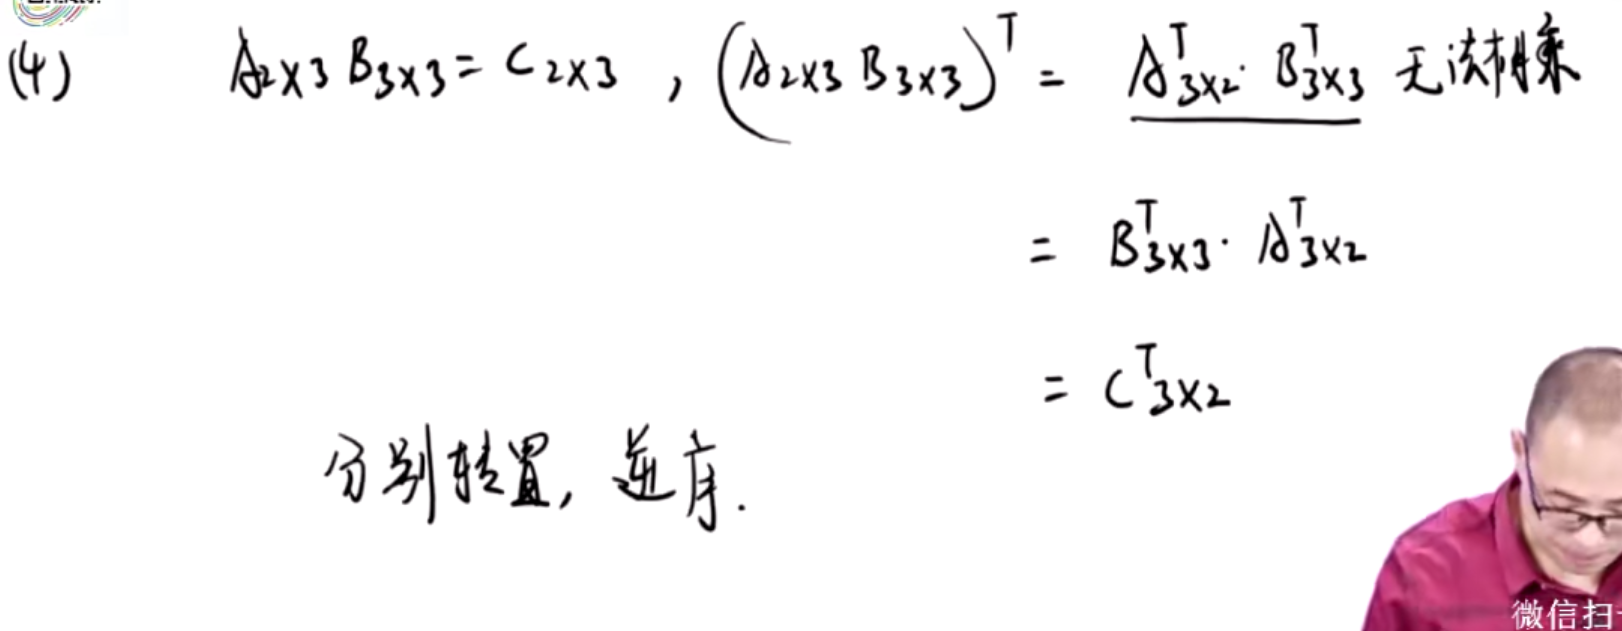 (4) A₂ₓ₃ B₃ₓ₃ = C₂ₓ₃ , (A₂ₓ₃ B₃ₓ₃)ᵀ = Aᵀ₃ₓ₂ · Bᵀ₃ₓ₃ 无法相乘
= Bᵀ₃ₓ₃ · Aᵀ₃ₓ₂
= Cᵀ₃ₓ₂
分别转置, 逆序.
微信扫